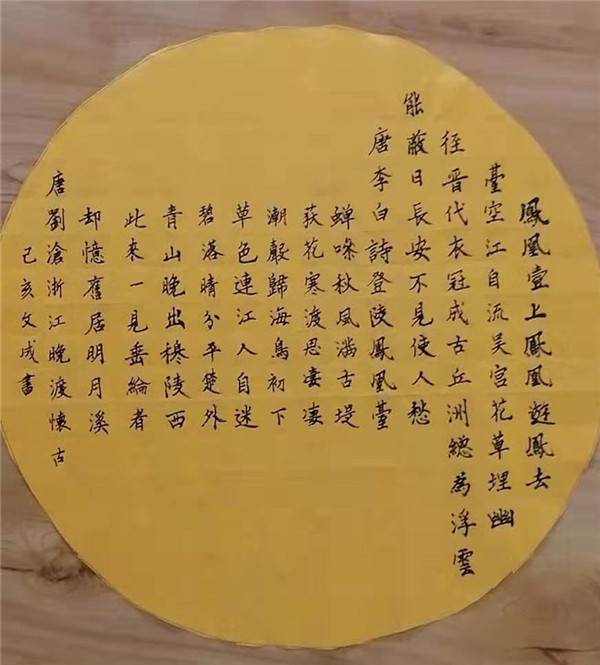 鳳凰臺上鳳凰遊鳳去
臺空江自流吴宫花草埋幽
徑晋代衣冠成古丘洲總為浮雲
能蔽日長安不見使人愁
唐李白詩登陵鳳凰臺
蟬噪秋風滿古堤
荻花寒渡思凄凄
潮聲歸海鳥初下
草色連江人自迷
碧落晴分平楚外
青山晚出穆陵西
此來一見垂綸者
却憶舊居明月溪
唐劉滄浙江晚渡懷古
己亥文成書